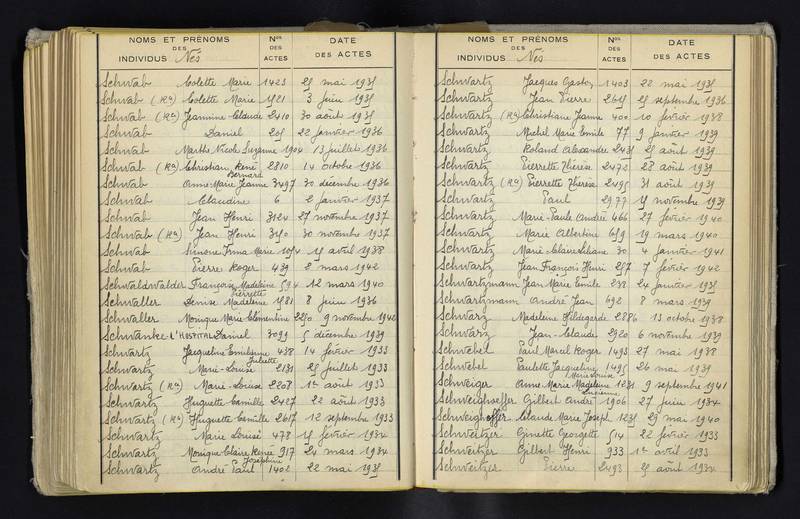 NOMS ET PRÉNOMS DES INDIVIDUS Nés Nos DES ACTES DATE DES ACTES
Schwab Colette Marie 1423 28 mai 1931
Schwab (Ra) Colette Marie 1521 3 juin 1931
Schwab (Ra) Jeannine Claude 2410 30 août 1931
Schwab Daniel 201 22 janvier 1936
Schwab Marthe Nicole Suzanne 1904 13 juillet 1936
Schwab (Ra) Christian René 2810 14 octobre 1936
Bernard
Schwab Anne-Marie Jeanne 3497 30 décembre 1936
Schwab Claudine 6 2 janvier 1937
Schwab Jean Henri 3124 27 novembre 1937
Schwab (Ra) Jean Henri 30 novembre 1937
Schwab Simone Irma Marie avril 1938
Schwab Pierre Roger 439 8 mars 1942
Schwaldwalder Françoise Madeleine 594 12 mars 1940
Pierrette
Schwaller Denise Madeleine 1581 8 juin 1936
Schwaller Monique Marie-Clémentine 9 novembre 1942
Schwanke-L'HOSPITAL Daniel 3099 5 décembre 1939
Schwartz Jacqueline Emilienne 438 14 février 1933
Juliette
Schwartz Marie-Louise 2131 25 juillet 1933
Schwartz (Ra) Marie-Louise 2208 1er août 1933
Schwartz Huguette Camille 2427 22 août 1933
Schwartz (Ra) Huguette Camille 2617 12 septembre 1933
Schwartz Marie Louise 478 15 février 1934
Schwartz Monique-Claire Renée 917 24 mars 1934
Joséphine
Schwartz André Paul 1402 22 mai 1931
NOMS ET PRÉNOMS DES INDIVIDUS Nés Nos DES ACTES DATE DES ACTES
Schwartz Jacques Gaston 1403 22 mai 1931
Schwartz Jean Pierre 2615 25 septembre 1936
Schwartz (Ra) Christiane Jeanne 400 10 février 1938
Schwartz Michel Marie Emile 77 9 janvier 1939
Schwartz Roland Alexandre 2431 25 août 1939
Schwartz Pierrette Thérèse 2472 28 août 1939
Schwartz (Ra) Pierrette Thérèse 2495 31 août 1939
Schwartz Paul 2977 15 novembre 1939
Schwartz Marie-Paule Andrée 466 27 février 1940
Schwartz Marie Albertine 659 19 mars 1940
Schwartz Marie-Claire Liliane 30 4 janvier 1941
Schwartz Jean François Henri 257 7 février 1942
Schwartzmann Jean Marie Emile 238 24 janvier 1931
Schwartzmann André Jean 692 8 mars 1939
Schwarz Madeleine Hildegarde 2886 13 octobre 1938
Schwarz Jean-Claude 2920 6 novembre 1939
Schwebel Paul Marcel Roger 1493 27 mai 1938
Schwebel Paulette Jacqueline 1495 26 mai 1939
Marie Louise
Schweiger Anne Marie Madeleine 1231 9 septembre 1941
Lucienne
Schweighoeffer Gilbert André 1906 27 juin 1934
Schweighoeffer Claude Marie Joseph 1231 29 mai 1940
Schweitzer Ginette Georgette 514 22 février 1933
Schweitzer Gilbert Henri 933 1er avril 1933
Schweitzer Pierre 2493 25 août 1934